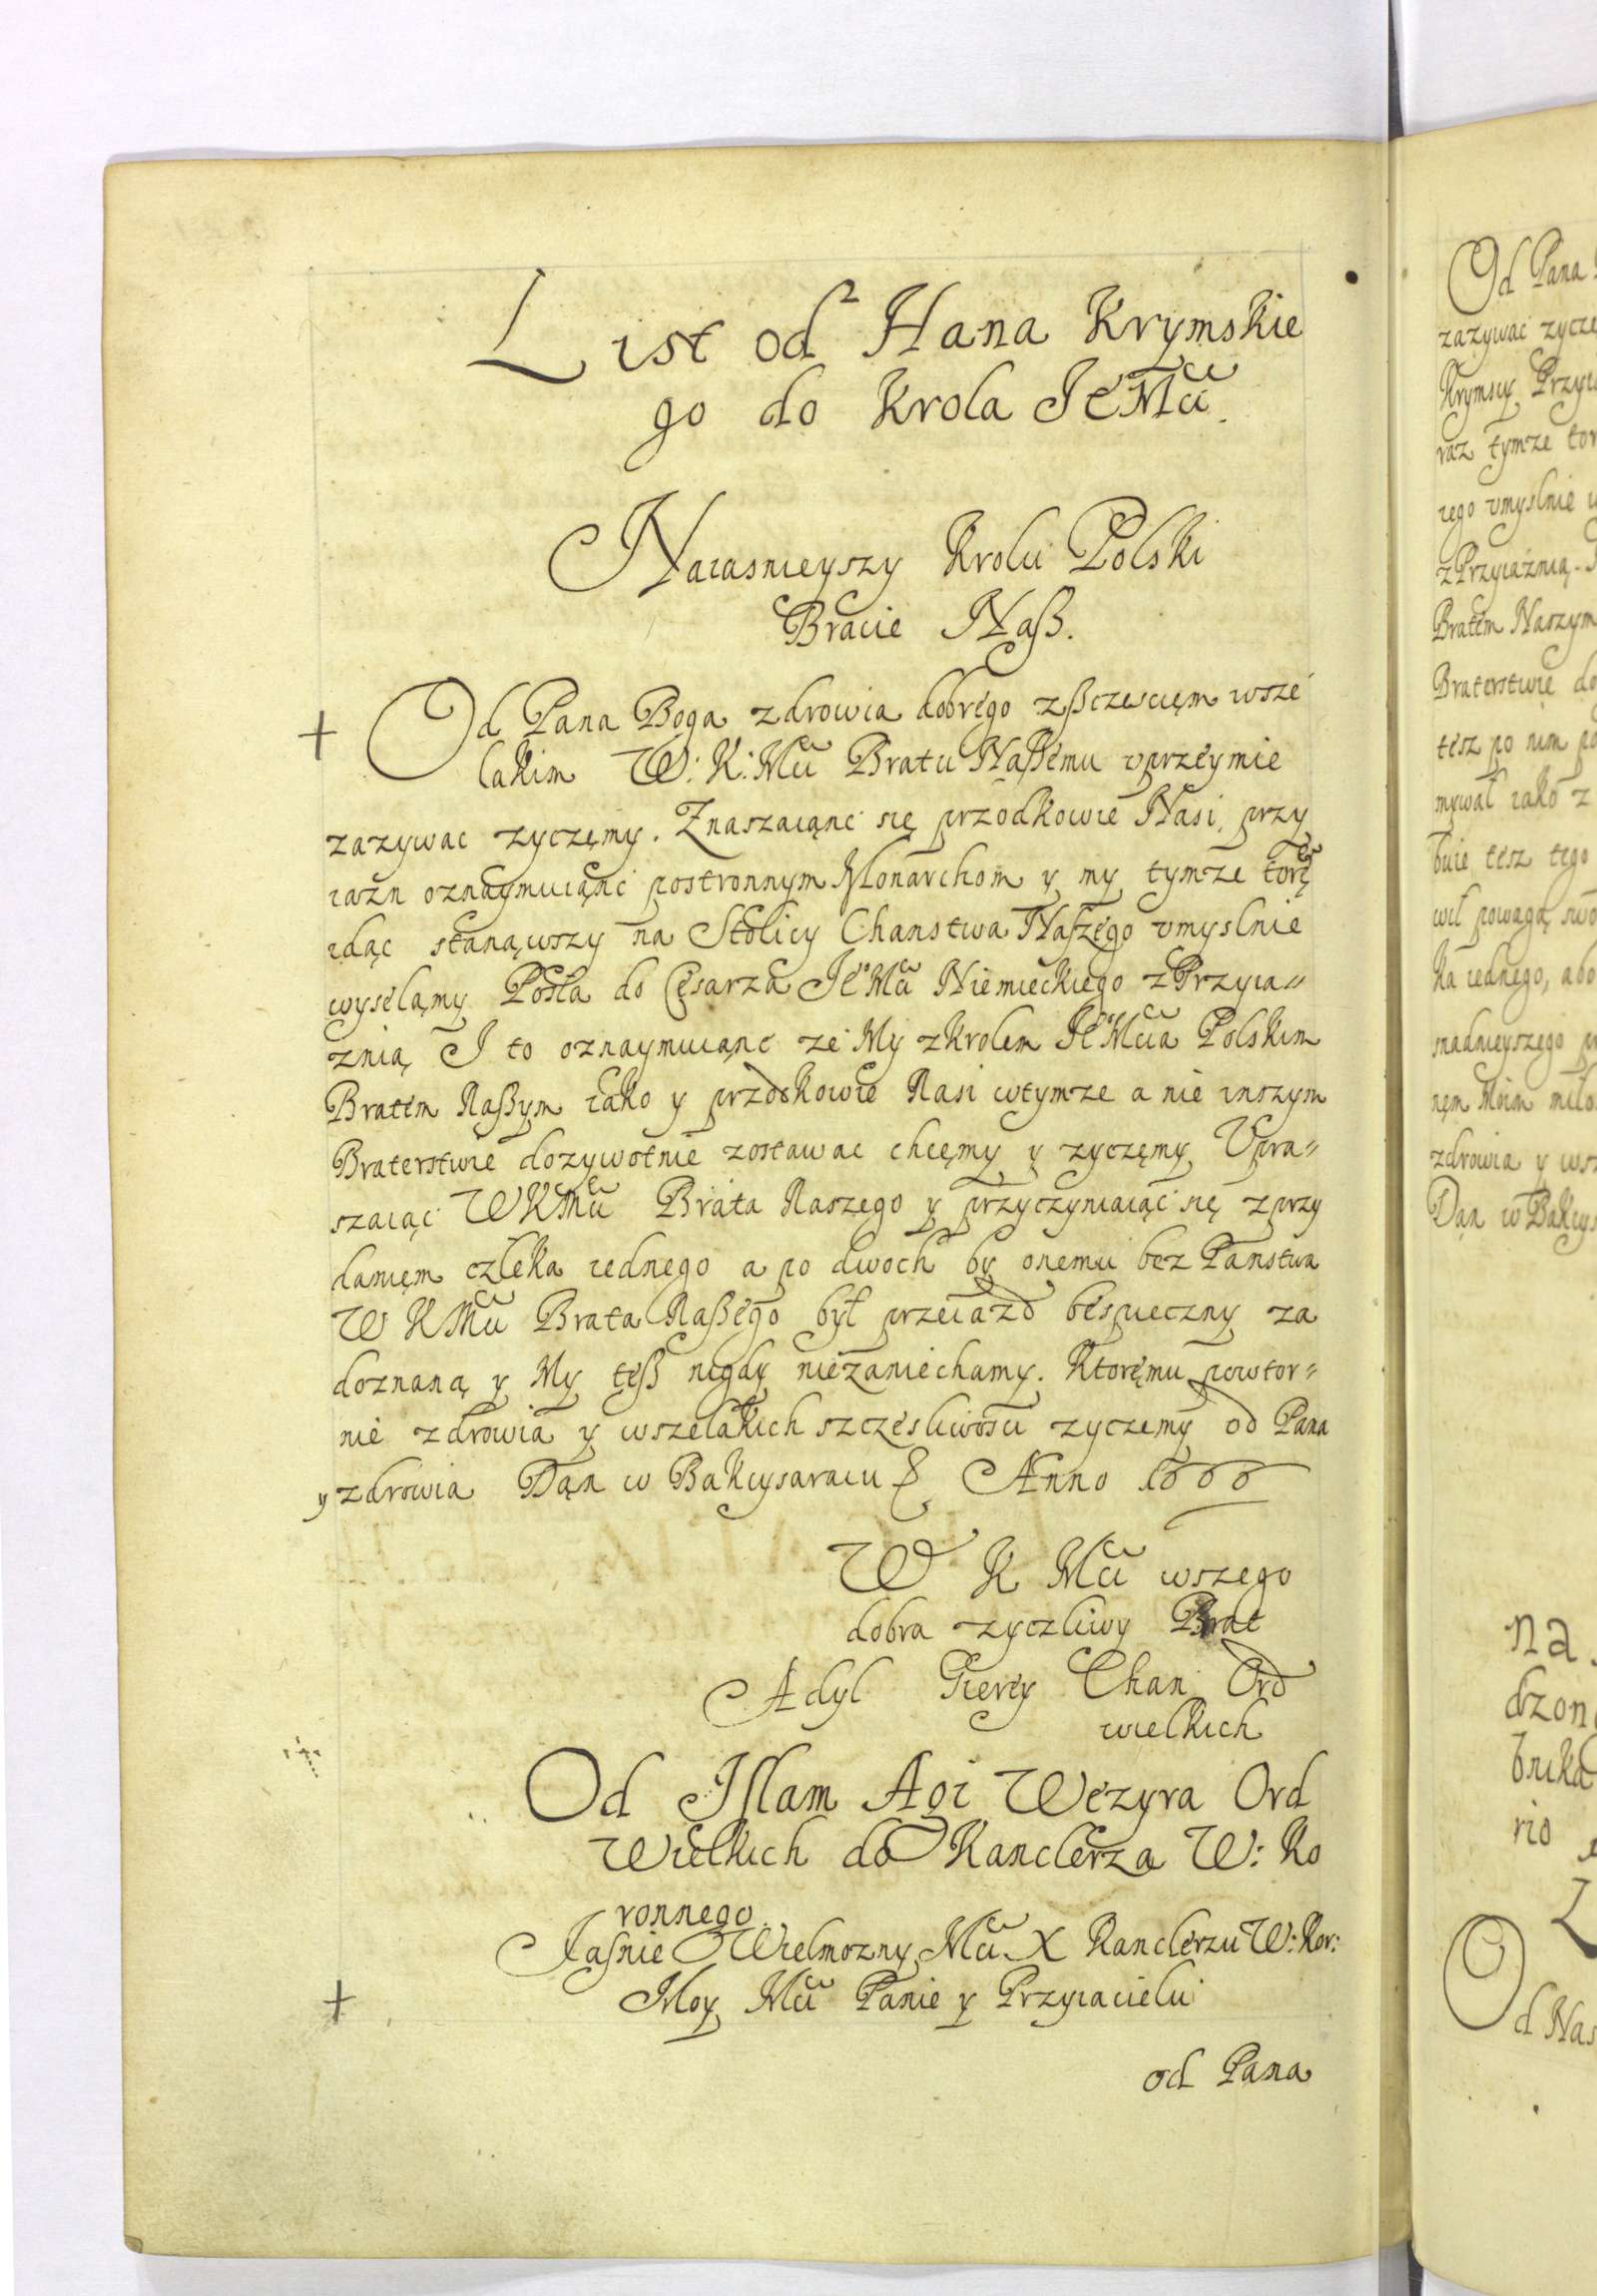 List od Hana Krymskie
go do Krola JeMci
Naiasnieyszy Krolu Polski
Bracie Naß.
Od Pana Boga zdrowia dobrego zßczesciem wsze
lakim W: K: Mci Bratu Naßemu vprzeymie
zazywac zyczęmy. Znaszaiąnc się przodkowie Nasi przy
iazn oznaymuiąnc postronnym Monarchom y my tymze torę
idąc stanąwszy na Stolicy Chanstwa Naszego vmyslnie
wyselamy Posła do Cęsarza JeMci Niemieckiego z Przyia"
znią J to oznaymuiąnc ze My z Krolem JeMcia Polskim
Bratem Naßym iako y przodkowie Nasi wtymze a nie inszym
Braterstwie dozywotnie zostawac chcęmy y zyczęmy Vpra"
szaiąc WKMci Brata Naszego y przyczyniaiąc się z przy
daniem człeka iednego a po dwoch by onemu bez Panstwa
W KMci Brata Naßego był przeiazd bespieczny za
doznaną y My tęß nigdy niezaniechamy. Ktoręmu powtor"
nie zdrowia y wszelakich szczesliwosci zyczemy od Pana
y zdrowia Dąn w Bakcysaraiu Anno 1666
W K Mci wszego
dobra zyczliwy Brat
Adyl Gierey Chan Ord
wielkich
Od Jslam Agi Wezyra Ord
Wielkich do Kanclerza W: Ko
ronnego
Jasnie Wielmozny Mci X Kanclerzu W: Kor:
Moy Mci Panie y Przyiacielu
od Pana
Od Pana
zazywac zycze
Krymscy
raz tymze tor
rego vmyslnie
z Przyiaźnią
Bratem Naszym
Braterstwie do
tesz po nim po
mywał iako z
buie tesz tego
wil powagą swo
ka iednego, abo
snadnieyszego
nęm Moim miło
zdrowia y wsz
Dąn w Bakcys
na
dzon
bnika
rio
Od Nas